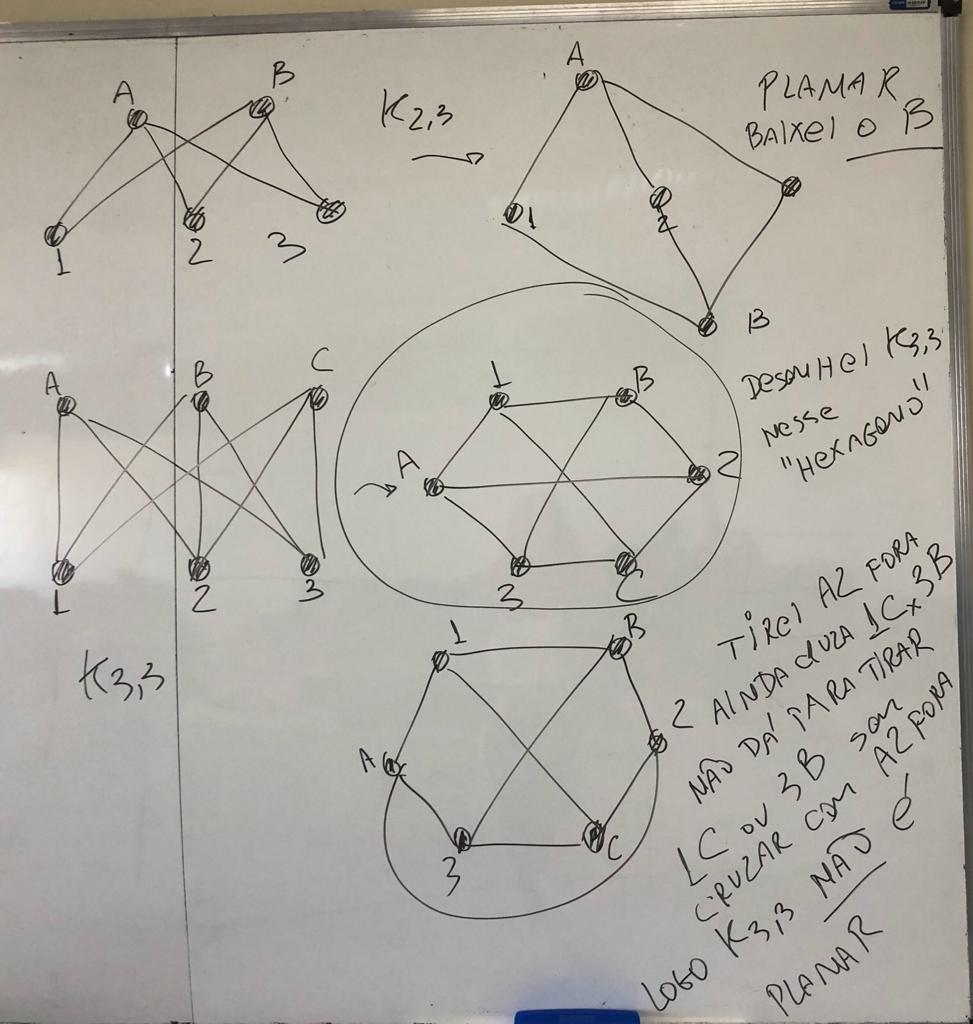 A
B
1
2
3
K2,3
A
1
2
B
PLANAR
BAIXEI O B
A
B
C
1
2
3
K3,3
1
B
A
2
3
C
DESENHEI K3,3
NESSE
"HEXAGONO"
1
B
A
2
3
C
TIREI A2 FORA
AINDA CRUZA 1C x 3B
NÃO DÁ PARA TIRAR
1C OU 3B SEM
CRUZAR COM A2 FORA
LOGO K3,3 NÃO É
PLANAR